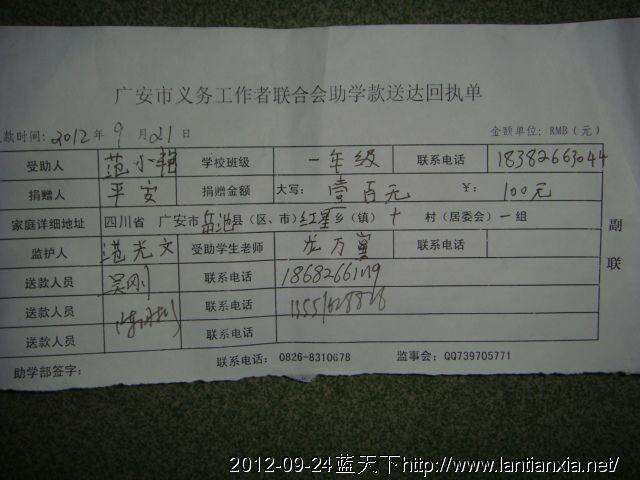 广安市义务工作者联合会助学款送达回执单
款时间: 2012 年 9 月 21 日 金额单位: RMB (元)
受助人 范小艳 学校班级 一年级 联系电话 18382663044
捐赠人 平安 捐赠金额 大写: 壹百元 ¥: 100元
家庭详细地址 四川省 广安市岳池县(区、市)红星乡(镇) 十 村(居委会)一组
监护人 范光文 受助学生老师 龙万 联系电话
送款人员 吴刚 联系电话
送款人员 联系电话
送款人员 联系电话
副联
助学部签字: 联系电话: 0826-8310678 监事会: QQ739705771
2012-09-24蓝天下http://www.lantianxia.net/